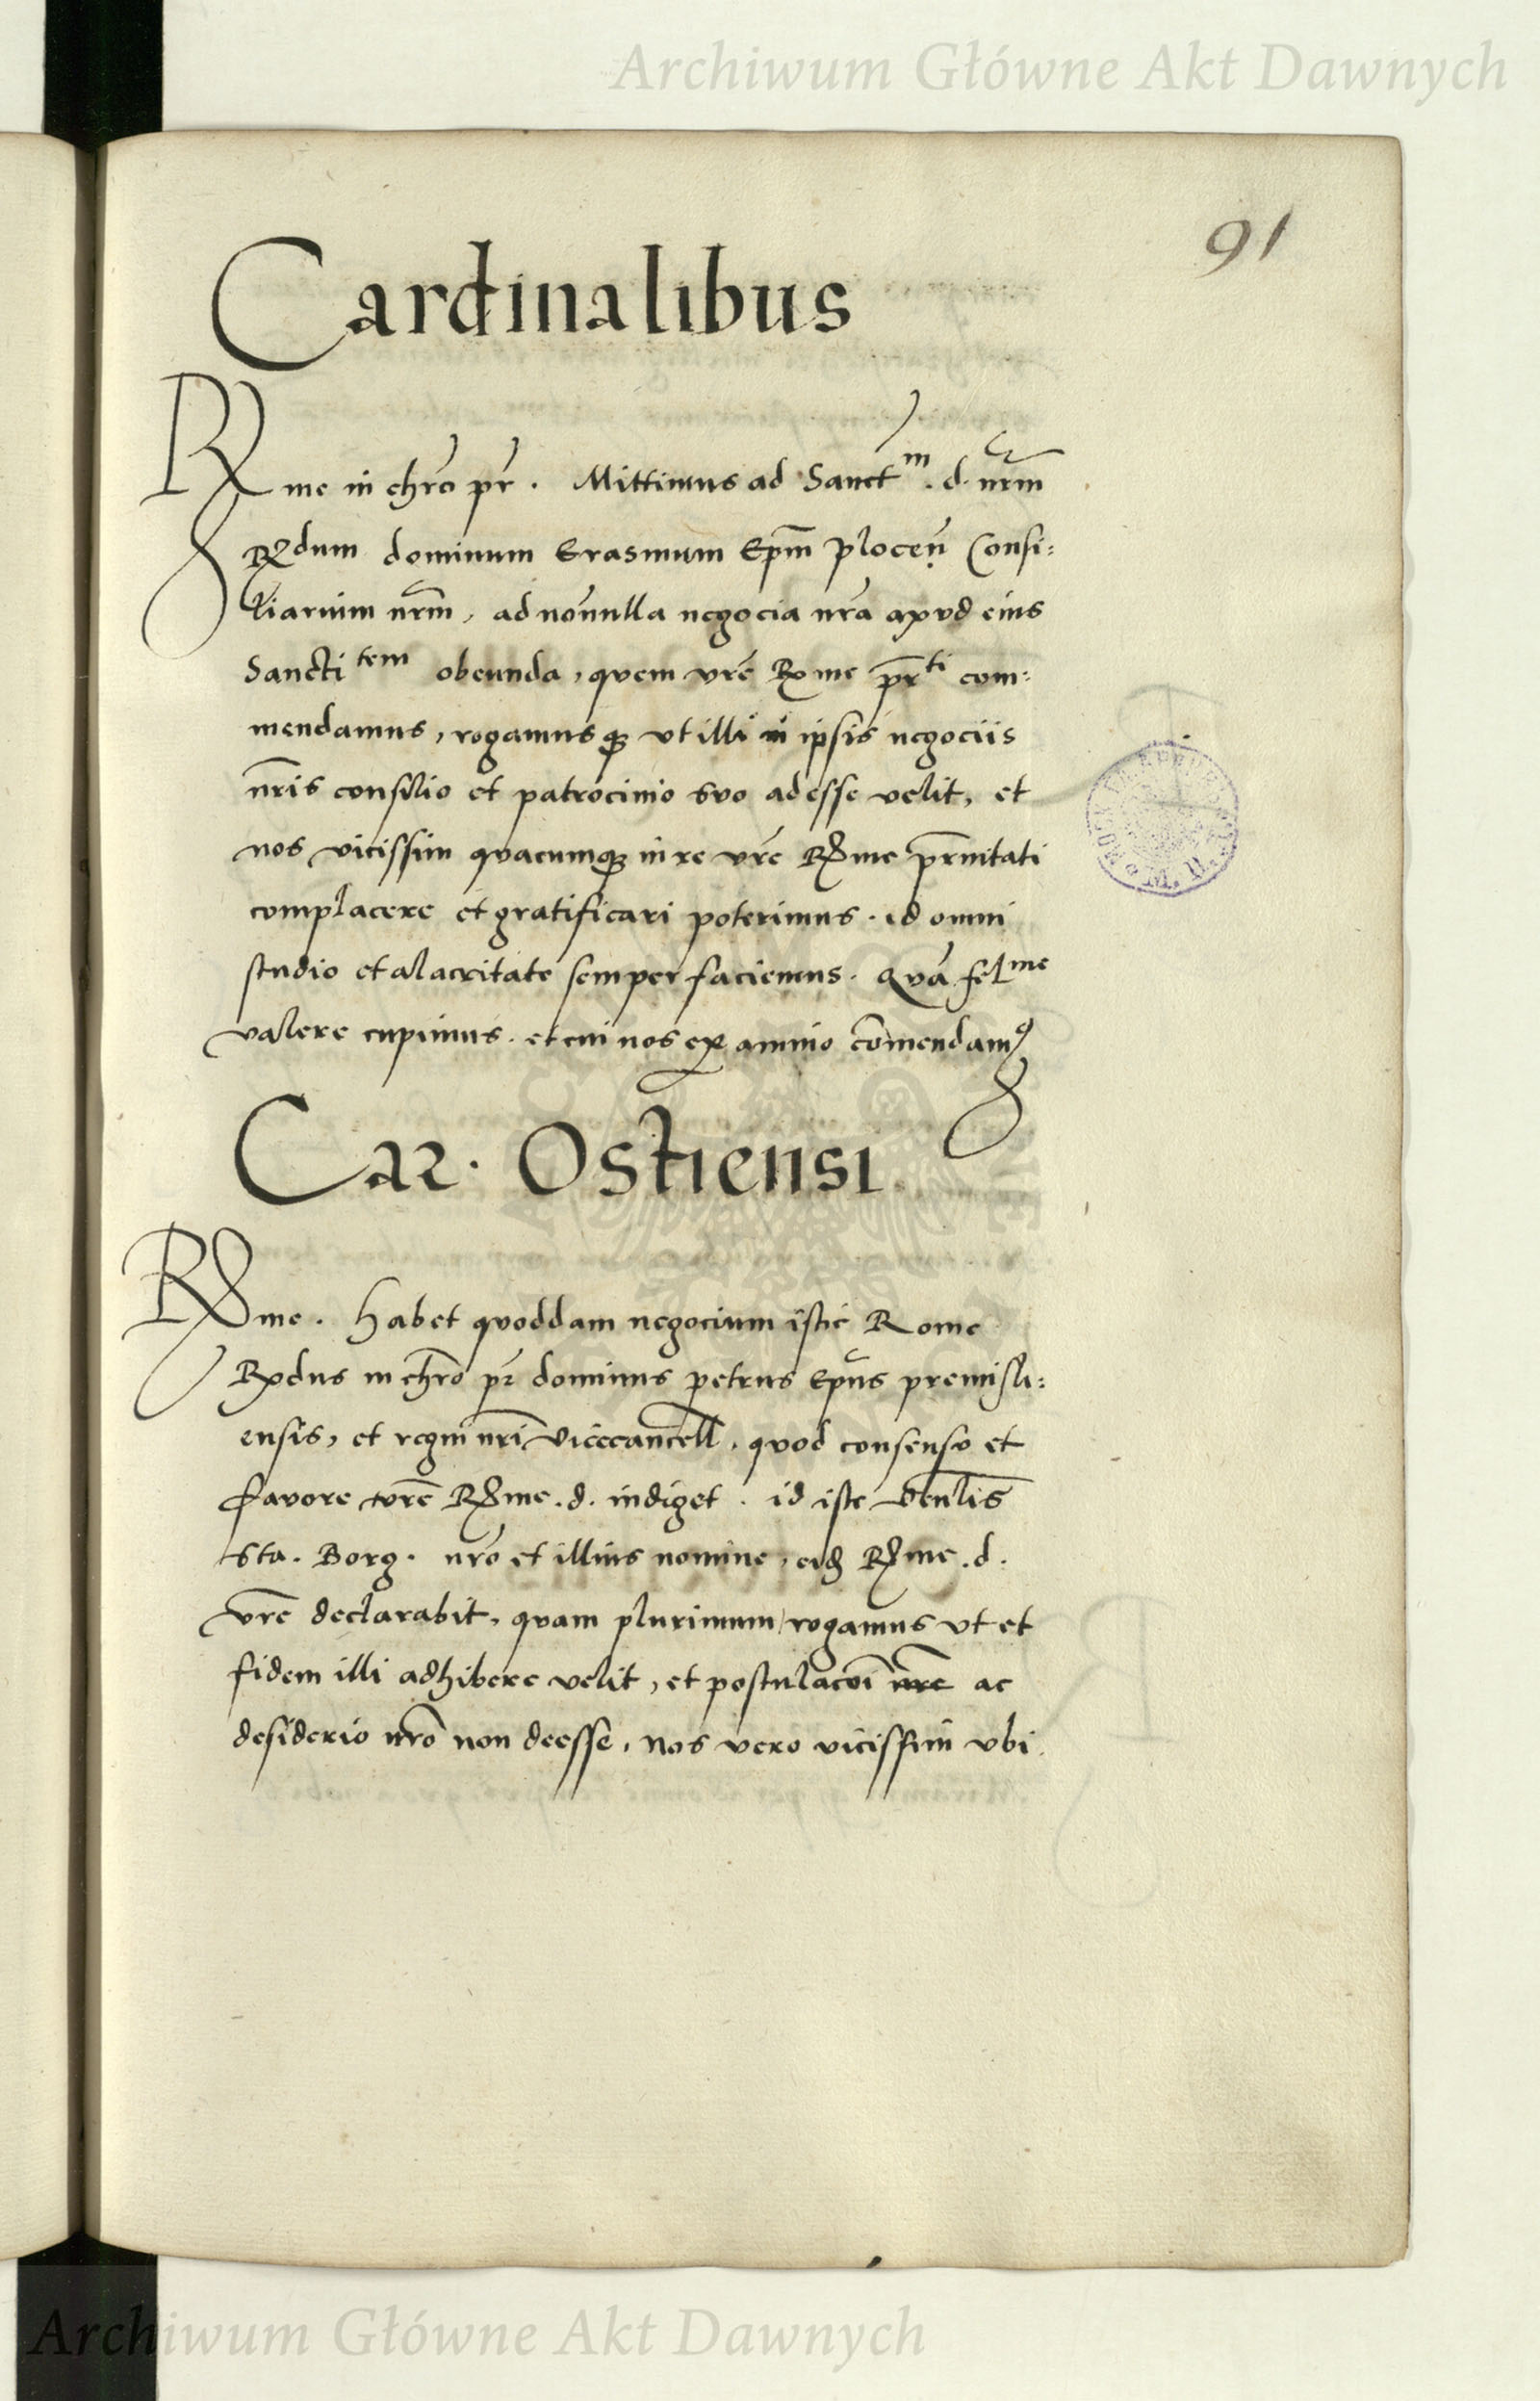 Archiwum Główne Akt Dawnych
91
Cardinalibus
Rme in chro pr. Mittimus ad Sanct^m. d. nrm
Rdum dominum Erasmum Epm plocen Consi:
liarium nrm, ad nonnulla negocia nra apud eius
Sancti^tem obeunda, quem vre Rme pr^ti com:
mendamus, rogamusq vt illi in ipsis negociis
nris consilio et patrocinio suo adesse velit, et
nos vicissim quacumq in re vre Rme prnitati
complacere et gratificari poterimus. id omni
studio et alacritate semper faciemus. Quā fel^me
valere cupimus. et cui nos ex animo comendam9
Car. Ostiensi
Rme. habet quoddam negocium istic Rome
Rdus in chro pr dominus petrus Epus premisli:
ensis, et regni nri vicecancell, quod consensu et
favore vre Rme. d. indiget. id iste
Sta. Borg. nro et illius nomine, eid Rme. d.
vre declarabit, quam plurimum rogamus vt et
fidem illi adhibere velit, et postulacoi nre ac
desiderio nro non deesse, nos vero vicissim vbi
Archiwum Główne Akt Dawnych